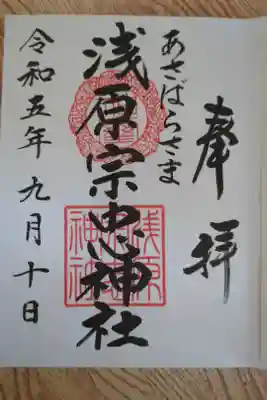 奉拝
あさばらさま
浅原宗忠神社
令和五年九月十日